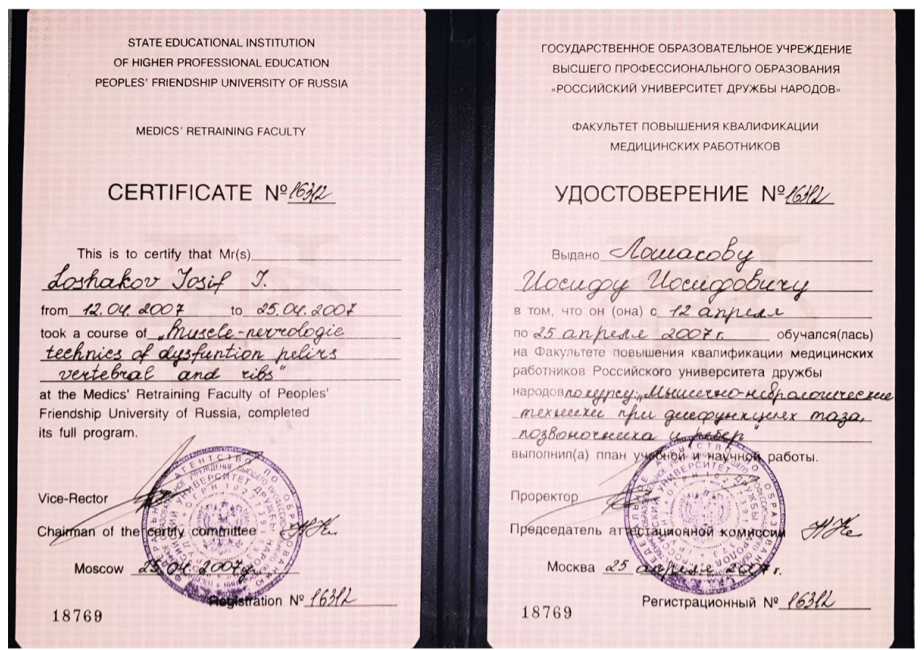 STATE EDUCATIONAL INSTITUTION
OF HIGHER PROFESSIONAL EDUCATION
PEOPLES' FRIENDSHIP UNIVERSITY OF RUSSIA
MEDICS' RETRAINING FACULTY
CERTIFICATE № 16312
This is to certify that Mr(s)
Loshakov Iosif I.
from 12.04.2007 to 25.04.2007
took a course of „Muscle-nevrologic
technics of dysfuntion pelirs
vertebral and ribs"
at the Medics' Retraining Faculty of Peoples'
Friendship University of Russia, completed
its full program.
Vice-Rector
Chairman of the certify committee
Moscow 25.04.2007г.
Registration № 16312
18769
ГОСУДАРСТВЕННОЕ ОБРАЗОВАТЕЛЬНОЕ УЧРЕЖДЕНИЕ
ВЫСШЕГО ПРОФЕССИОНАЛЬНОГО ОБРАЗОВАНИЯ
«РОССИЙСКИЙ УНИВЕРСИТЕТ ДРУЖБЫ НАРОДОВ»
ФАКУЛЬТЕТ ПОВЫШЕНИЯ КВАЛИФИКАЦИИ
МЕДИЦИНСКИХ РАБОТНИКОВ
УДОСТОВЕРЕНИЕ № 16312
Выдано Лошакову
Иосифу Иосифовичу
в том, что он (она) с 12 апреля
по 25 апреля 2007г. обучался(лась)
на Факультете повышения квалификации медицинских
работников Российского университета дружбы
народов по курсу: „Мышечно-неврологические
техники при дисфункциях таза,
позвоночника и ребер"
выполнил(а) план учебной и научной работы.
Проректор
Председатель аттестационной комиссии
Москва 25 апреля 2007г.
Регистрационный № 16312
18769